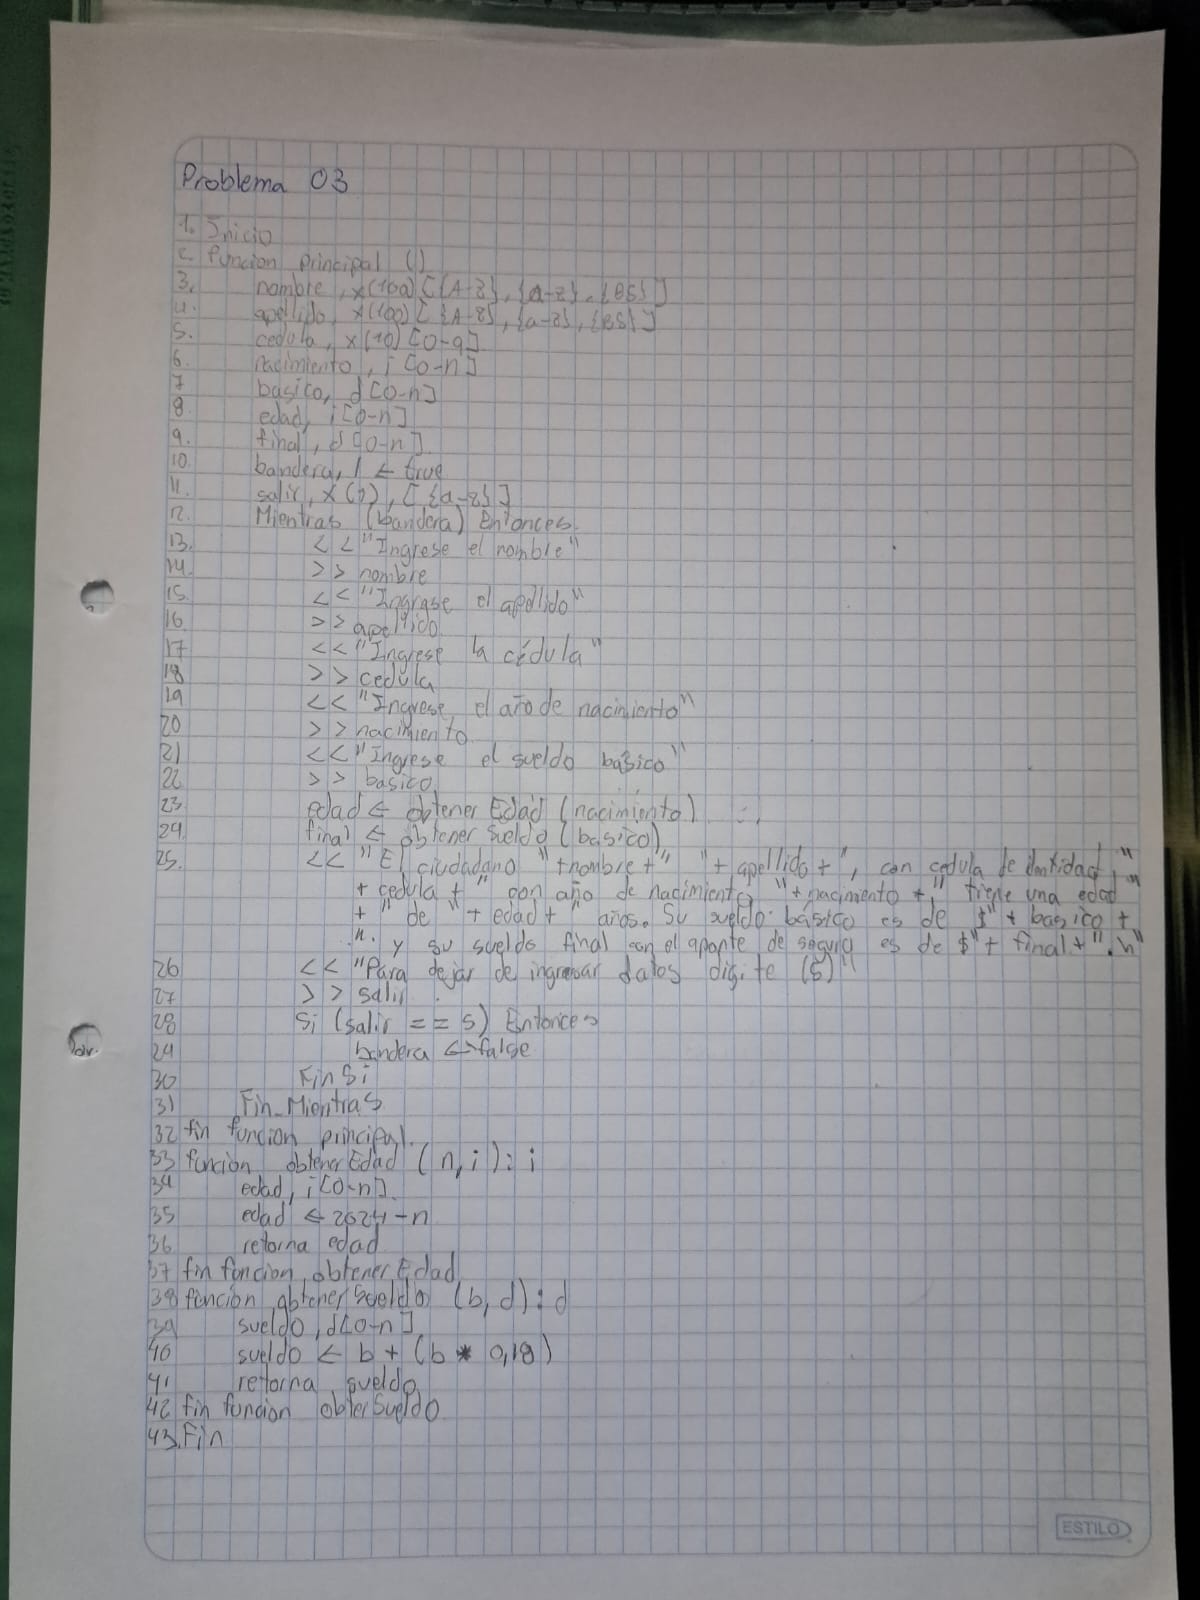 Problema 03
1. Inicio
2. funcion principal ()
3. nombre, x(100) [{A-Z}, {a-z}, {ES}]
4. apellido, x(100) [{A-Z}, {a-z}, {ES}]
5. cedula, x(10) [0-9]
6. nacimiento, i [0-n]
7 basico, d [0-n]
8. edad, i [0-n]
9. final, d [0-n]
10. bandera, l ← true
11. salir, x( ), [{a-z}]
12. Mientras (bandera) Entonces
13. << "Ingrese el nombre"
14. >> nombre
15. << "Ingrase el apellido"
16 >> apellido
17 << "Ingrese la cédula"
18 >> cedula
19 << "Ingrese el año de nacimiento"
20 >> nacimiento
21 << "Ingrese el sueldo básico"
22 >> basico
23 edad ← obtener Edad (nacimiento)
24. final ← obtener Sueldo (basico)
25. << "El ciudadano "+nombre+" "+apellido+", con cedula de identidad "
+ cedula +" con año de nacimiento "+nacimento+" tiene una edad
+ "de "+edad+" años. Su sueldo básico es de $"+basico+
". y su sueldo final con el aporte de seguro es de $"+final+".\n"
26 << "Para dejar de ingresar datos digite (s)"
27 >> salir
28 Si (salir == s) Entonces
29 bandera ← false
30 Fin Si
31 Fin_Mientras
32 fin funcion principal.
33 funcion obtenerEdad (n,i): i
34 edad, i [0-n]
35 edad ← 2024-n
36 retorna edad
37 fin funcion obtenerEdad
38 funcion obtenerSueldo (b,d): d
39 sueldo, d [0-n]
40 sueldo ← b + (b * 0,18)
41 retorna sueldo
42 fin funcion obterSueldo
43. Fin
ESTILO